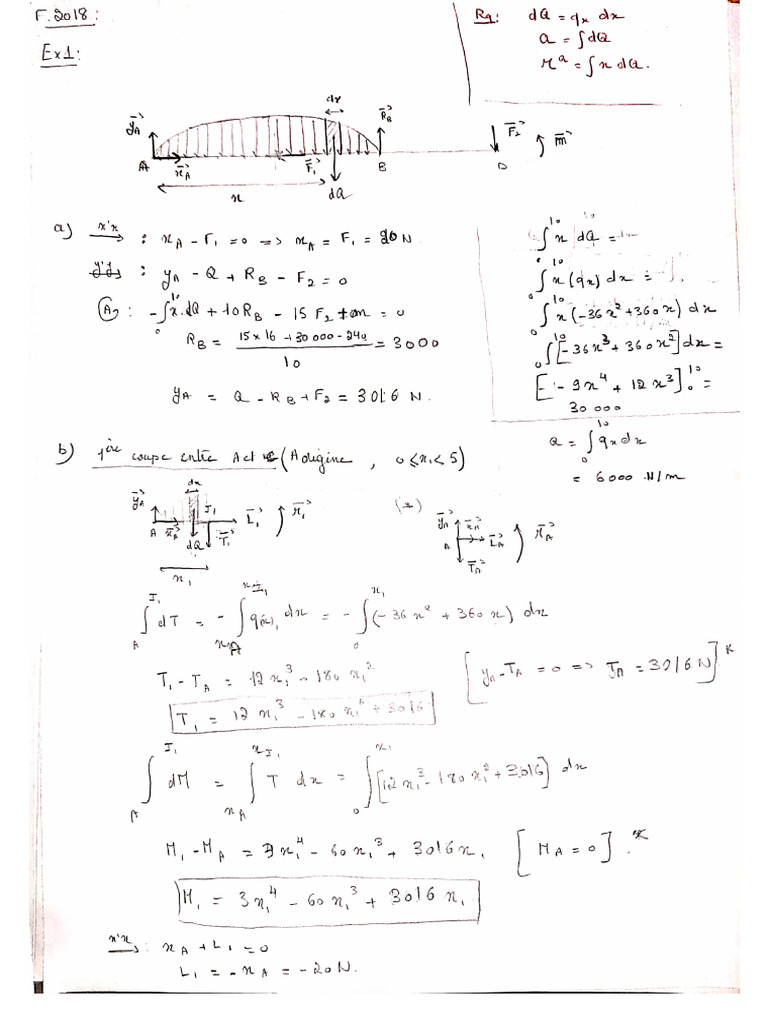 F. 2018 :
Rq: dQ = qx dx
Q = ∫dQ
Mᵃ = ∫x dQ.
Ex1:
dx
yA
RB
F2
m
A
xA
F1
B
D
x
dQ
a) x'x : xA - F1 = 0 => xA = F1 = 20 N.
y'y : yA - Q + RB - F2 = 0
A) : -∫₀¹⁰ x.dQ + 10RB - 15 F2 + m = 0
RB = (15 x 16 + 30 000 - 240) / 10 = 3000
yA = Q - RB + F2 = 3016 N.
∫₀¹⁰ x dQ =
∫₀¹⁰ x (qx) dx =
∫₀¹⁰ x (-36x² + 360x) dx
∫₀¹⁰ [-36x³ + 360x²] dx =
[-9x⁴ + 12x³]₀¹⁰ =
30 000
Q = ∫₀¹⁰ qx dx
= 6000 N/m
b) 1ère coupe entre A et (A origine , 0 ≤ x1 < 5)
dx
yA
I1
A xA
dQ
T1
L1
M1
x1
yA
xA
A
LA
TA
MA
∫ dT = - ∫ q(x) dx = - ∫₀ˣ¹ (-36x² + 360x) dx
T1 - TA = 12x1³ - 180x1²
[yA - TA = 0 => TA = 3016 N]*
T1 = 12x1³ - 180x1² + 3016
∫ dM = ∫ T dx = ∫₀ˣ¹ [12x1³ - 180x1² + 3016] dx
M1 - MA = 3x1⁴ - 60x1³ + 3016x1 [MA = 0].*
M1 = 3x1⁴ - 60x1³ + 3016 x1
x'x : xA + L1 = 0
L1 = - xA = - 20 N.